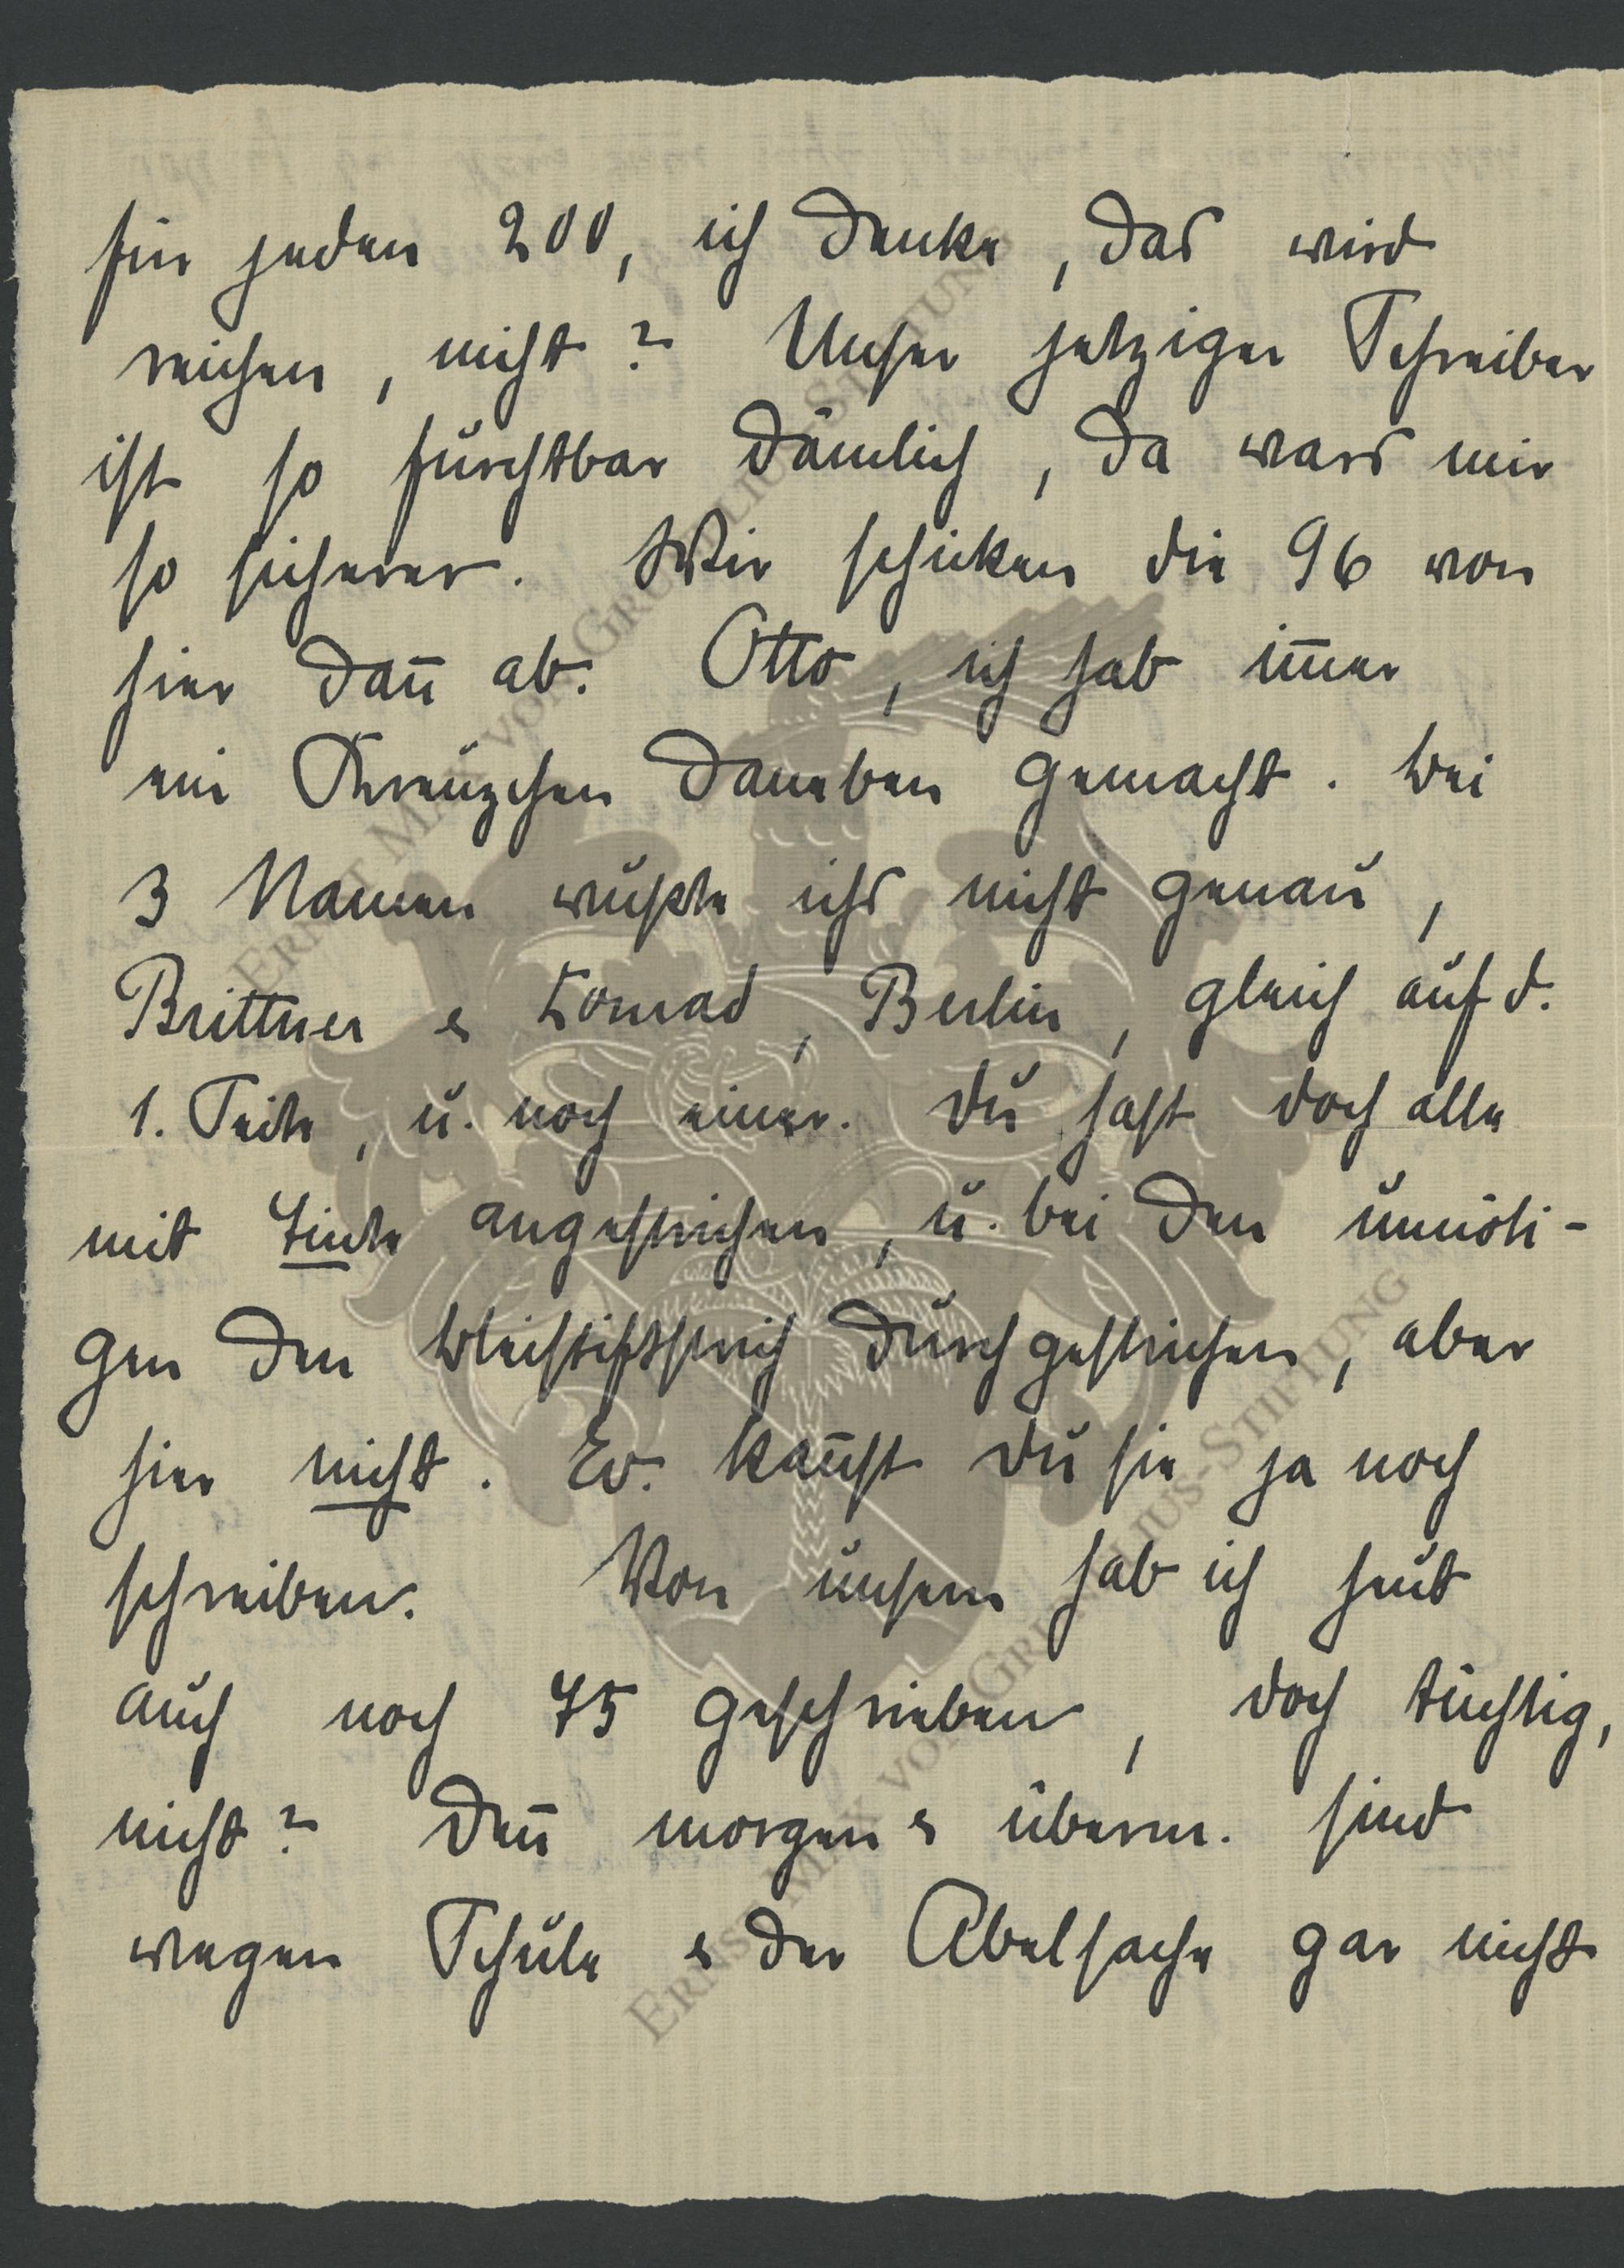 für jeden 200, ich denke, das wird
reichen, nicht? Unser jetziger Schreiber
ist so furchtbar dämlich, da wars mir
so sicherer. Wir schicken die 96 von
hier dan̄ ab. Otto, ich hab im̄er
ein Kreuzchen daneben gemacht. Bei
3 Namen wußte ichs nicht genau,
Brittner & Conrad, Berlin, gleich auf d.
1. Seite, u. noch einer. Du hast doch alle
mit Tinte angestrichen, u. bei den unnöti-
gen den Bleistiftstrich durchgestrichen, aber
hier nicht. Ev. kan̄st Du sie ja noch
schreiben. Von unsern hab ich heut
auch noch 75 geschrieben, doch tüchtig,
nicht? Den̄ morgen & überm. sind
wegen Schule & der Abelsache gar nicht
ERNST MAX VON GRUNELIUS-STIFTUNG
ERNST MAX VON GRUNELIUS-STIFTUNG